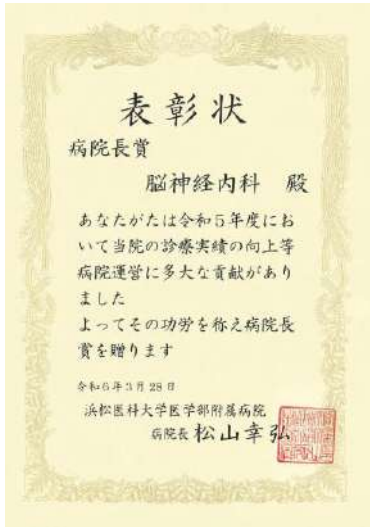 表彰状
病院長賞
脳神経内科 殿
あなたがたは令和5年度にお
いて当院の診療実績の向上等
病院運営に多大な貢献があり
ました
よってその功労を称え病院長
賞を贈ります
令和6年3月28日
浜松医科大学医学部附属病院
病院長 松山幸弘